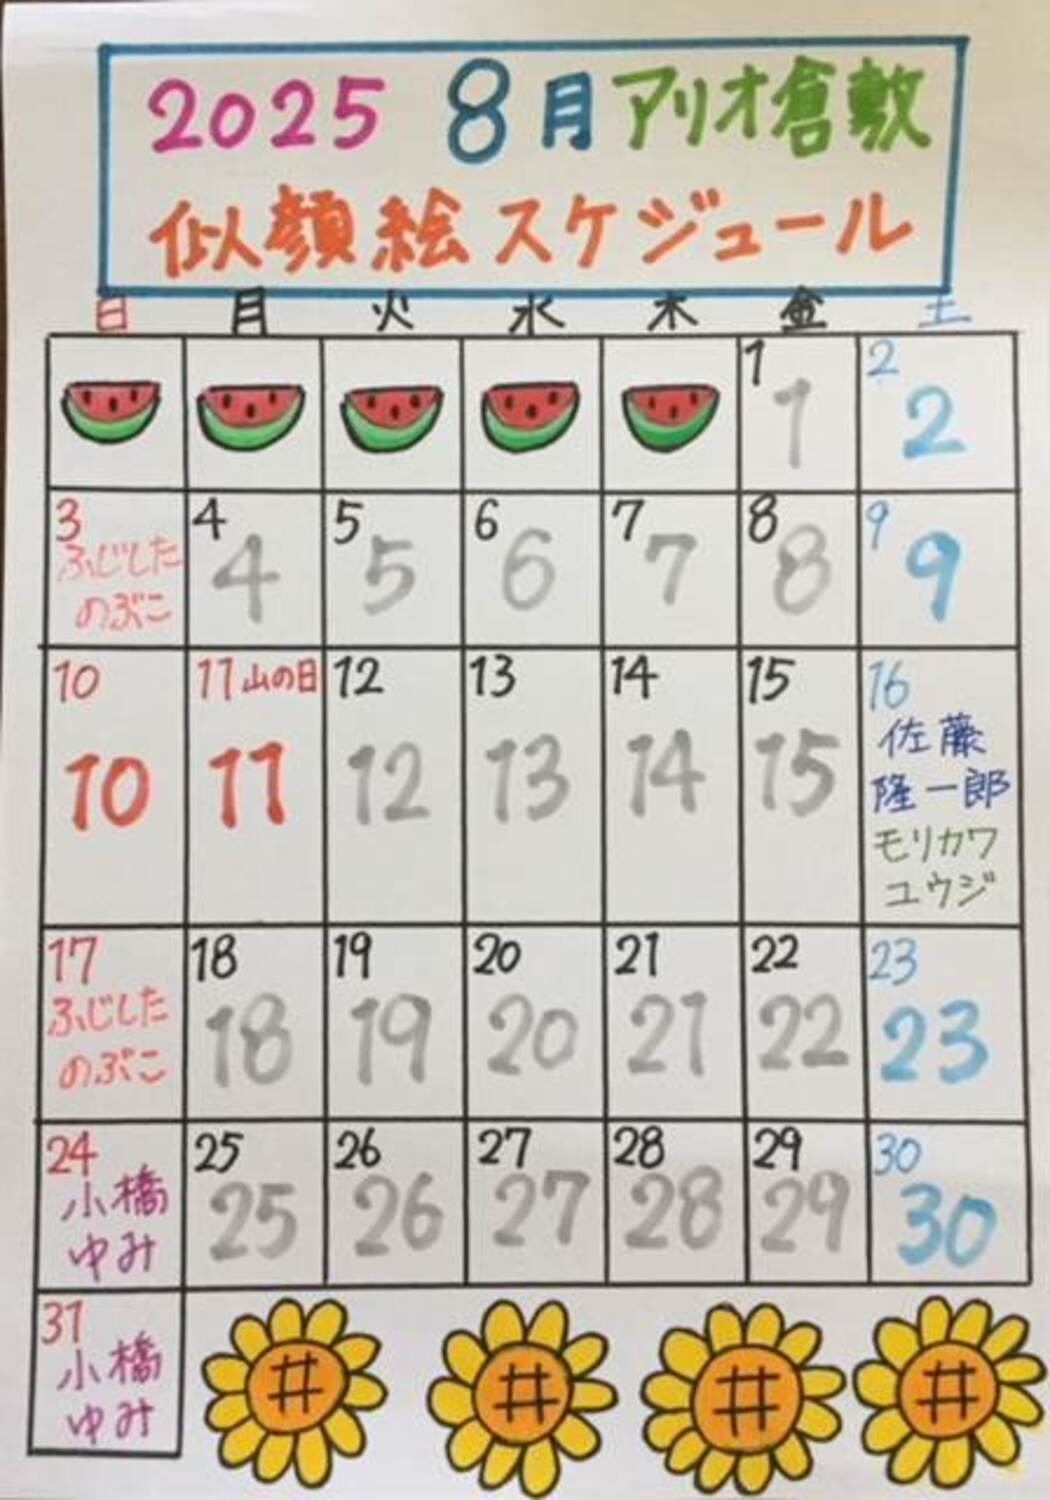 2025 8月 アリオ倉敷
似顔絵スケジュール
日 月 火 水 木 金 土
1 2
1 2
3 4 5 6 7 8 9
ふじした
のぶこ
4 5 6 7 8 9
10 11 山の日 12 13 14 15 16
10 11 12 13 14 15
佐藤
隆一郎
モリカワ
ユウジ
17 18 19 20 21 22 23
ふじした
のぶこ
18 19 20 21 22 23
24 25 26 27 28 29 30
小橋
ゆみ
25 26 27 28 29 30
31
小橋
ゆみ